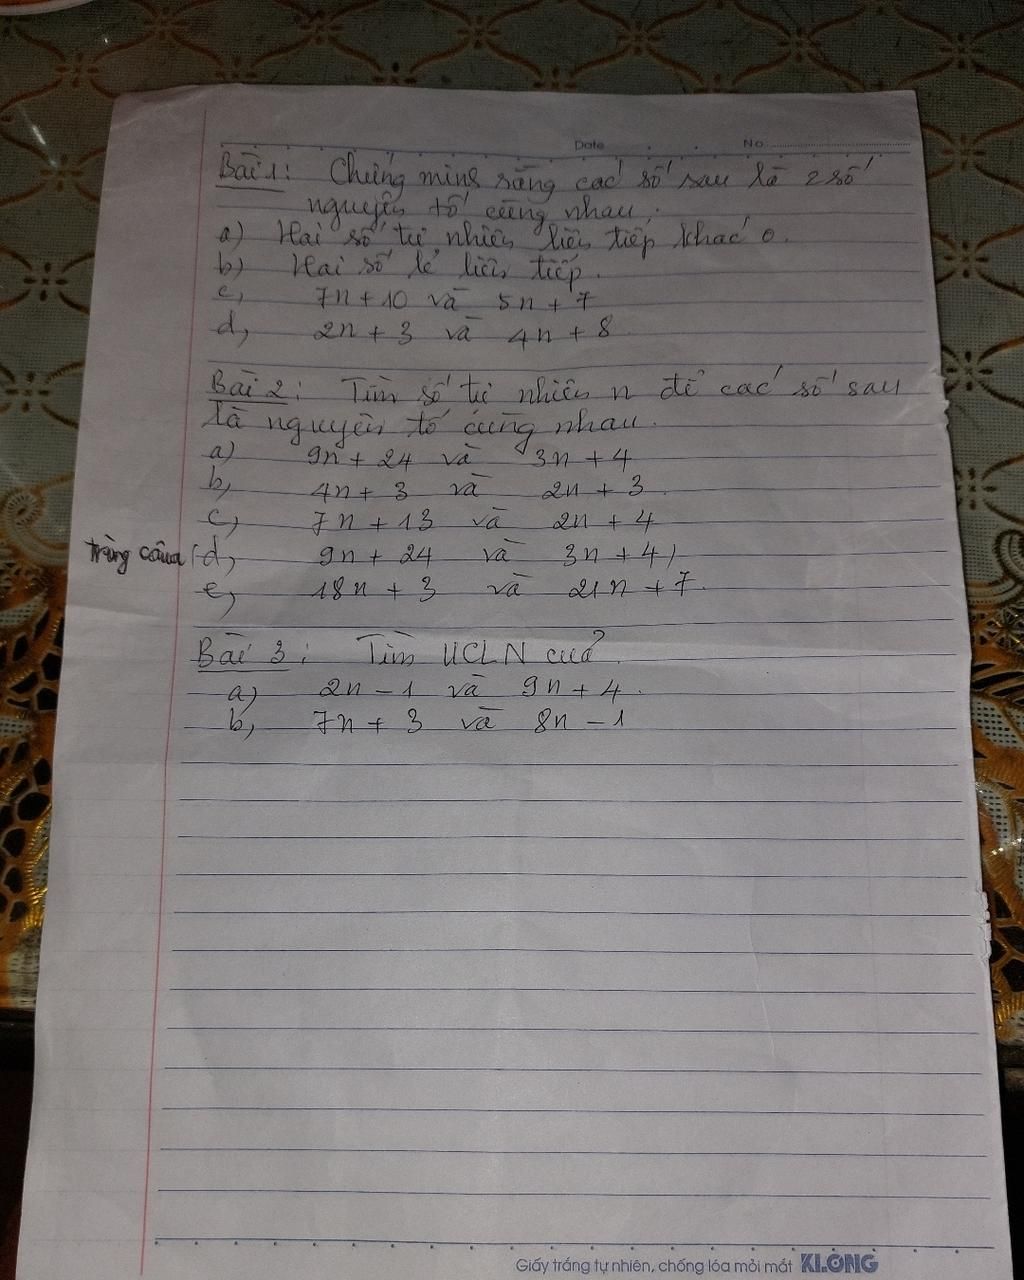 Date No
Bài 1: Chứng minh rằng các số sau là 2 số
nguyên tố cùng nhau:
a) Hai số tự nhiên liên tiếp khác 0.
b) Hai số lẻ liên tiếp.
c, 7n + 10 và 5n + 7
d, 2n + 3 và 4n + 8
Bài 2: Tìm số tự nhiên n để các số sau
là nguyên tố cùng nhau.
a) 9n + 24 và 3n + 4
b, 4n + 3 và 2n + 3
c, 7n + 13 và 2n + 4
trùng câu a (d, 9n + 24 và 3n + 4)
e, 18n + 3 và 21n + 7.
Bài 3: Tìm ƯCLN của
a) 2n - 1 và 9n + 4.
b, 7n + 3 và 8n - 1
Giấy trắng tự nhiên, chống lóa mỏi mắt KLONG